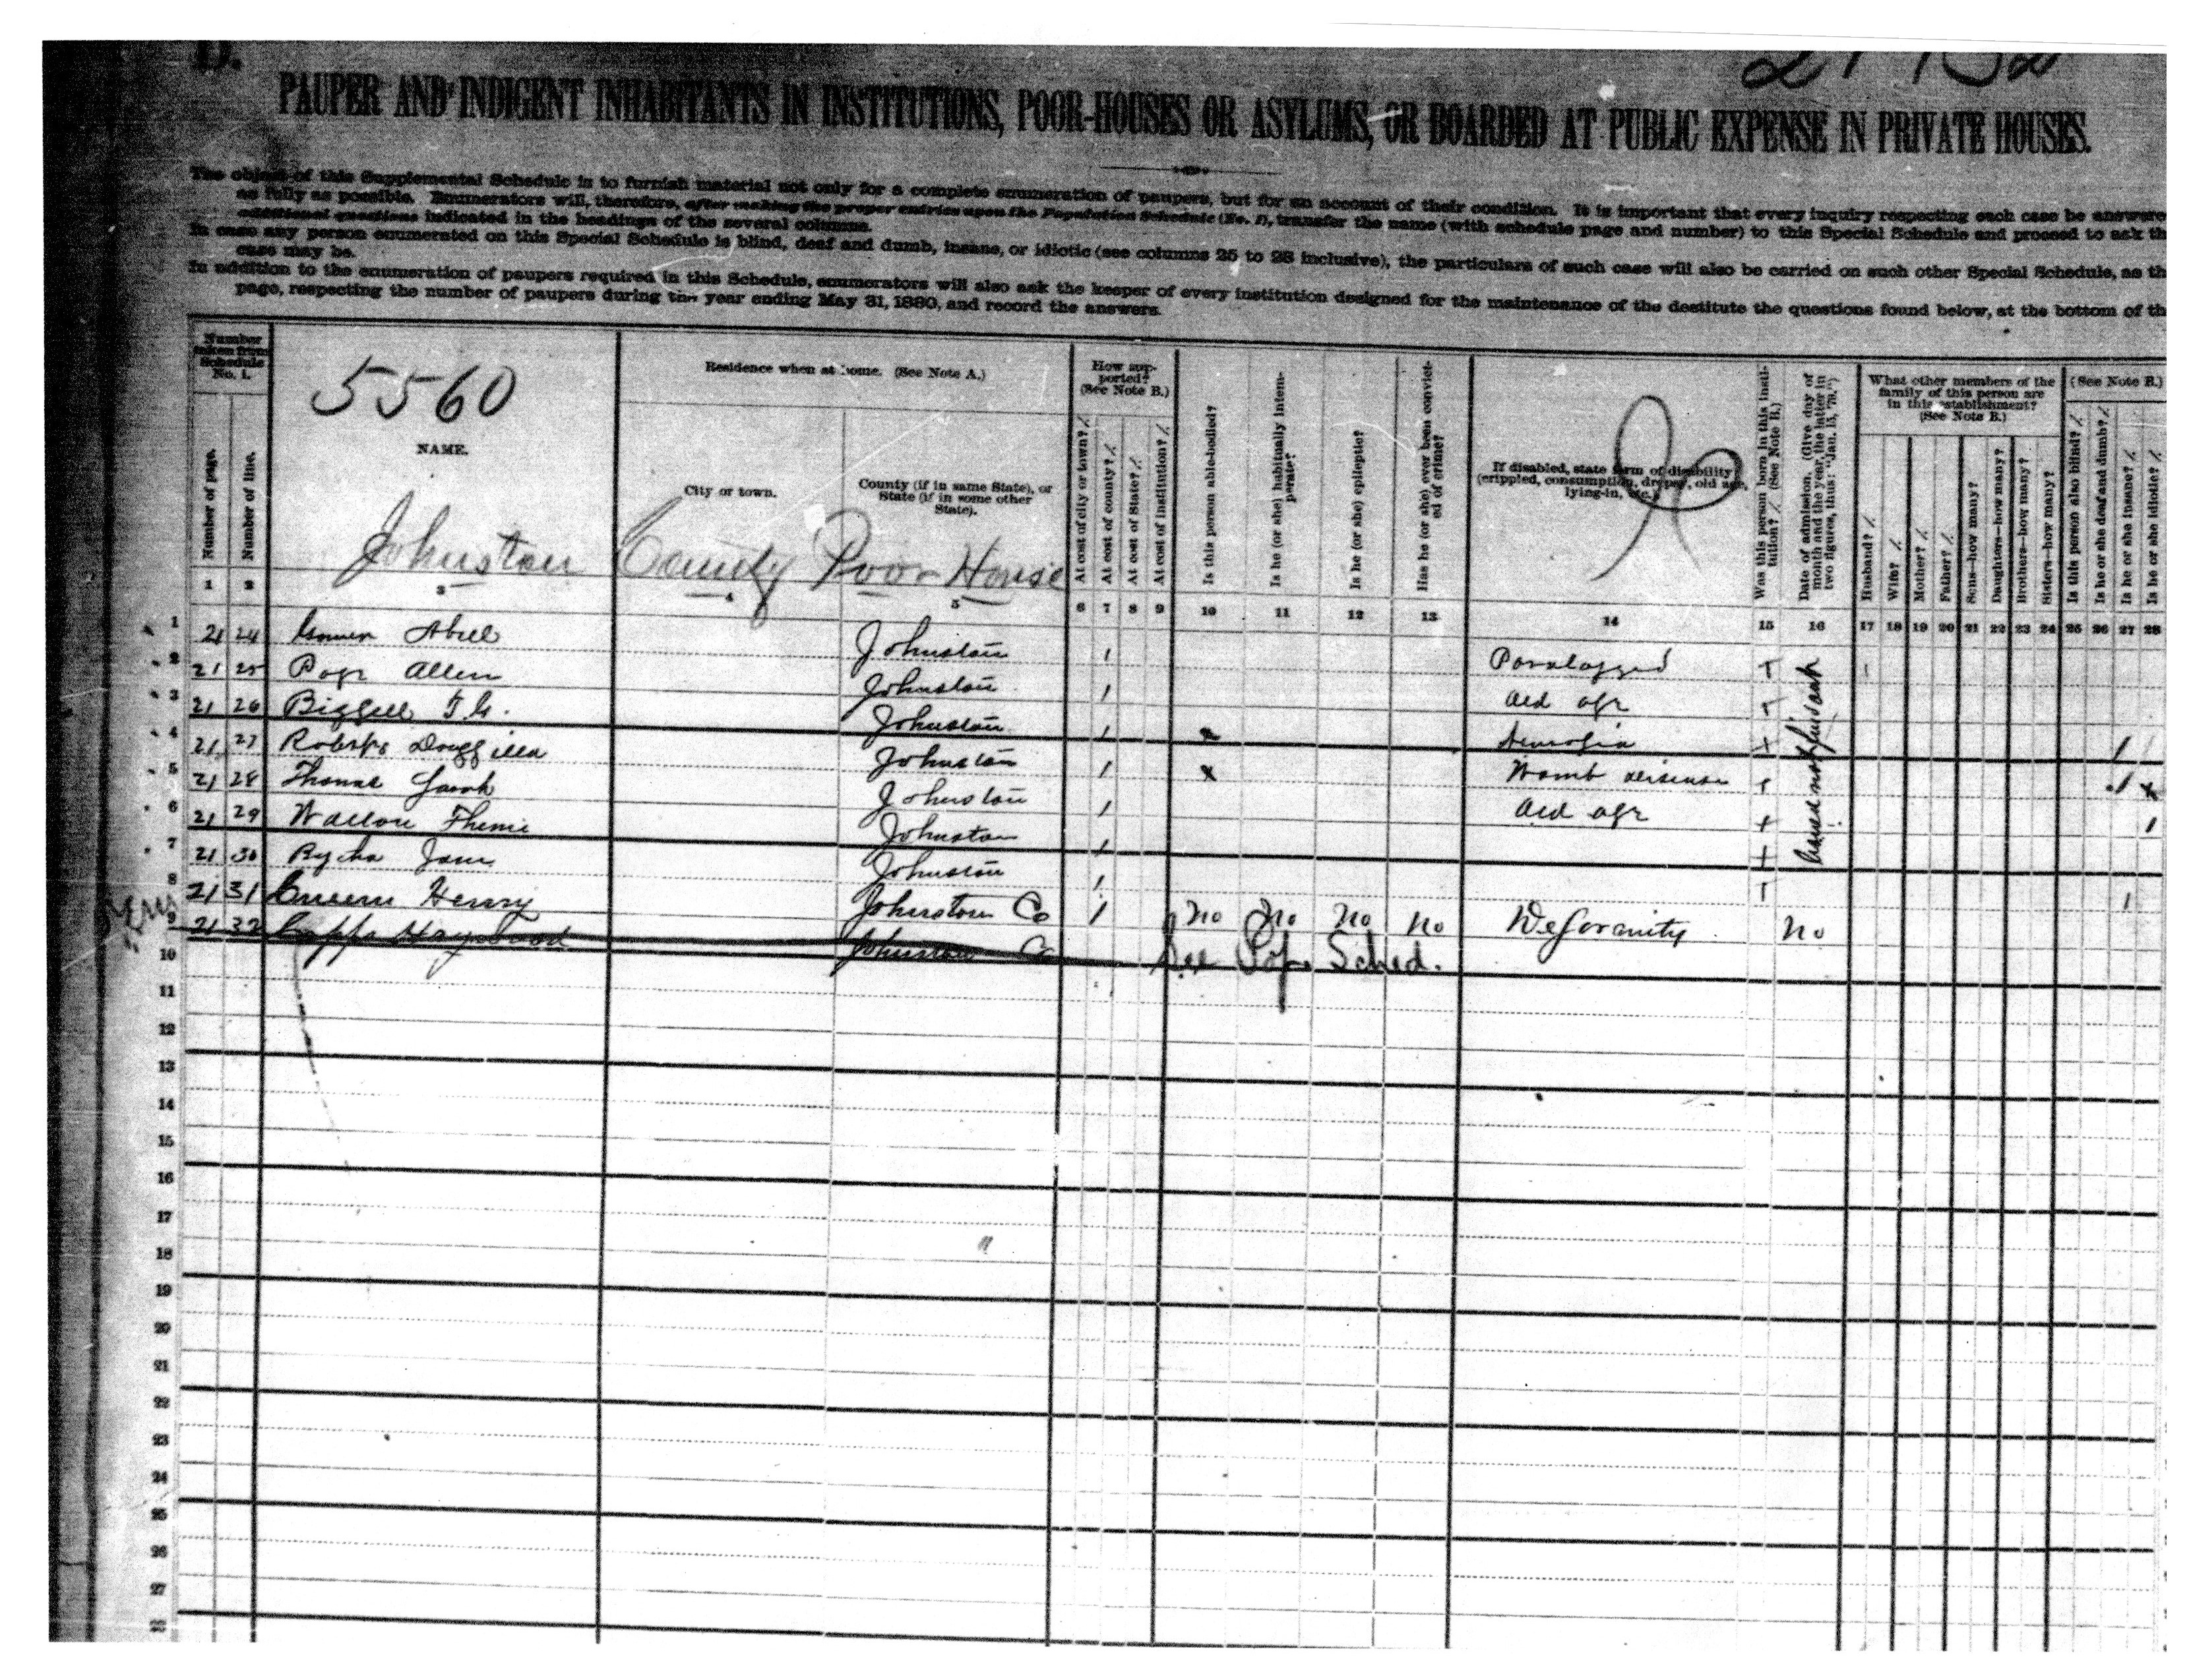 D.
PAUPER AND INDIGENT INHABITANTS IN INSTITUTIONS, POOR-HOUSES OR ASYLUMS, OR BOARDED AT PUBLIC EXPENSE IN PRIVATE HOUSES.
The object of this Supplemental Schedule is to furnish material not only for a complete enumeration of paupers, but for an account of their condition. It is important that every inquiry respecting each case be answere
as fully as possible. Enumerators will, therefore, after making the proper entries upon the Population Schedule (No. 1), transfer the name (with schedule page and number) to this Special Schedule and proceed to ask th
additional questions indicated in the headings of the several columns.
In case any person enumerated on this Special Schedule is blind, deaf and dumb, insane, or idiotic (see columns 25 to 28 inclusive), the particulars of such case will also be carried on such other Special Schedule, as th
case may be.
In addition to the enumeration of paupers required in this Schedule, enumerators will also ask the keeper of every institution designed for the maintenance of the destitute the questions found below, at the bottom of th
page, respecting the number of paupers during the year ending May 31, 1880, and record the answers.
Number taken from Schedule No. 1.
Number of page.
Number of line.
5560
NAME.
Residence when at home. (See Note A.)
City or town.
County (if in same State), or State (if in some other State).
Johnston County Poor House
How supported? (See Note B.)
At cost of city or town? /.
At cost of county? /.
At cost of State? /.
At cost of institution? /.
Is this person able-bodied?
Is he (or she) habitually intemperate?
Is he (or she) epileptic?
Has he (or she) ever been convicted of crime?
If disabled, state form of disability (crippled, consumption, dropsy, old age, lying-in, etc.)
Was this person born in this institution? /. (See Note B.)
Date of admission. (Give day of month and the year, the latter in two figures, thus: "Jan. 15, '79.")
What other members of the family of this person are in this establishment? (See Note B.)
Husband? /.
Wife? /.
Mother? /.
Father? /.
Sons—how many?
Daughters—how many?
Brothers—how many?
Sisters—how many?
(See Note B.)
Is this person also blind? /.
Is he or she deaf and dumb? /.
Is he or she insane? /.
Is he or she idiotic? /.
1 2 3 4 5 6 7 8 9 10 11 12 13 14 15 16 17 18 19 20 21 22 23 24 25 26 27 28
1 21 24 Johnston 1
2 21 25 Pope Allen Johnston 1 old age
3 21 26 Johnston 1
4 21 27 Johnston 1 x Womb disease
5 21 28 Thomas Johnston 1 old age
6 21 29 Johnston 1
7 21 30 Jane Johnston 1
8 21 31 Henry Johnston Co 1 no no no no Deformity no
9 21 32 Haywood Johnston Co See Pop. Sched.
10
11
12
13
14
15
16
17
18
19
20
21
22
23
24
25
26
27
28